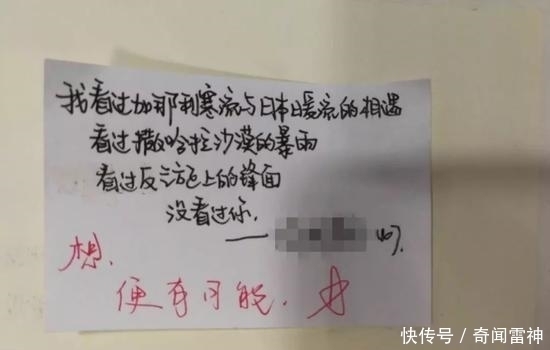 我看过加那利寒流与日本暖流的相遇
看过撒哈拉沙漠的暴雨
看过反气旋上的锋面
没看过你.
——
想.
便有可能.
快传号 / 奇闻雷神